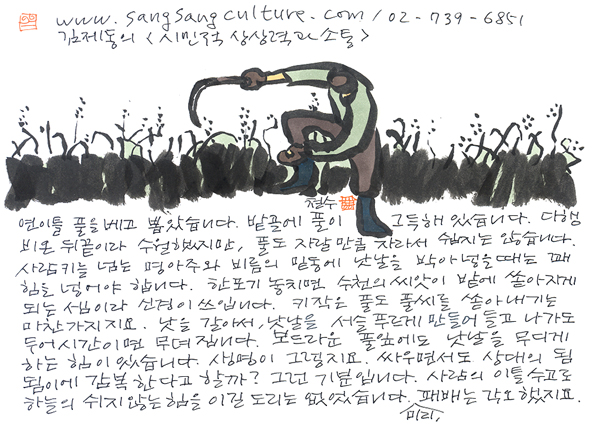 www.sangsangculture.com/02-739-6851
김제동의 <시민적 상상력과 소통>
철수
연이틀 풀을 베고 뽑았습니다. 밭골에 풀이 그득해 있습니다. 다행
비온 뒤끝이라 수월했지만, 풀도 자랄만큼 자라서 쉽지는 않습니다.
사람키를 넘는 명아주와 비름의 밑동에 낫날을 박아넣을때는 꽤
힘을 넣어야 합니다. 한포기 놓치면 수천의 씨앗이 밭에 쏟아지게
되는 셈이라 신경이 쓰입니다. 키작은 풀도 풀씨를 쏟아내기는
마찬가지지요. 낫을 갈아서, 낫날을 서슬푸르게 만들어 들고 나가도
두어시간이면 무뎌집니다. 보드라운 풀잎에도 낫날을 무디게
하는 힘이 있습니다. 생명이 그렇지요. 싸우면서도 상대의 됨
됨이에 감복한다고 할까? 그런 기분입니다. 사람의 이틀 수고로
하늘의 쉬지않는 힘을 이길 도리는 없었습니다. 패배는 각오했지요.
미리,